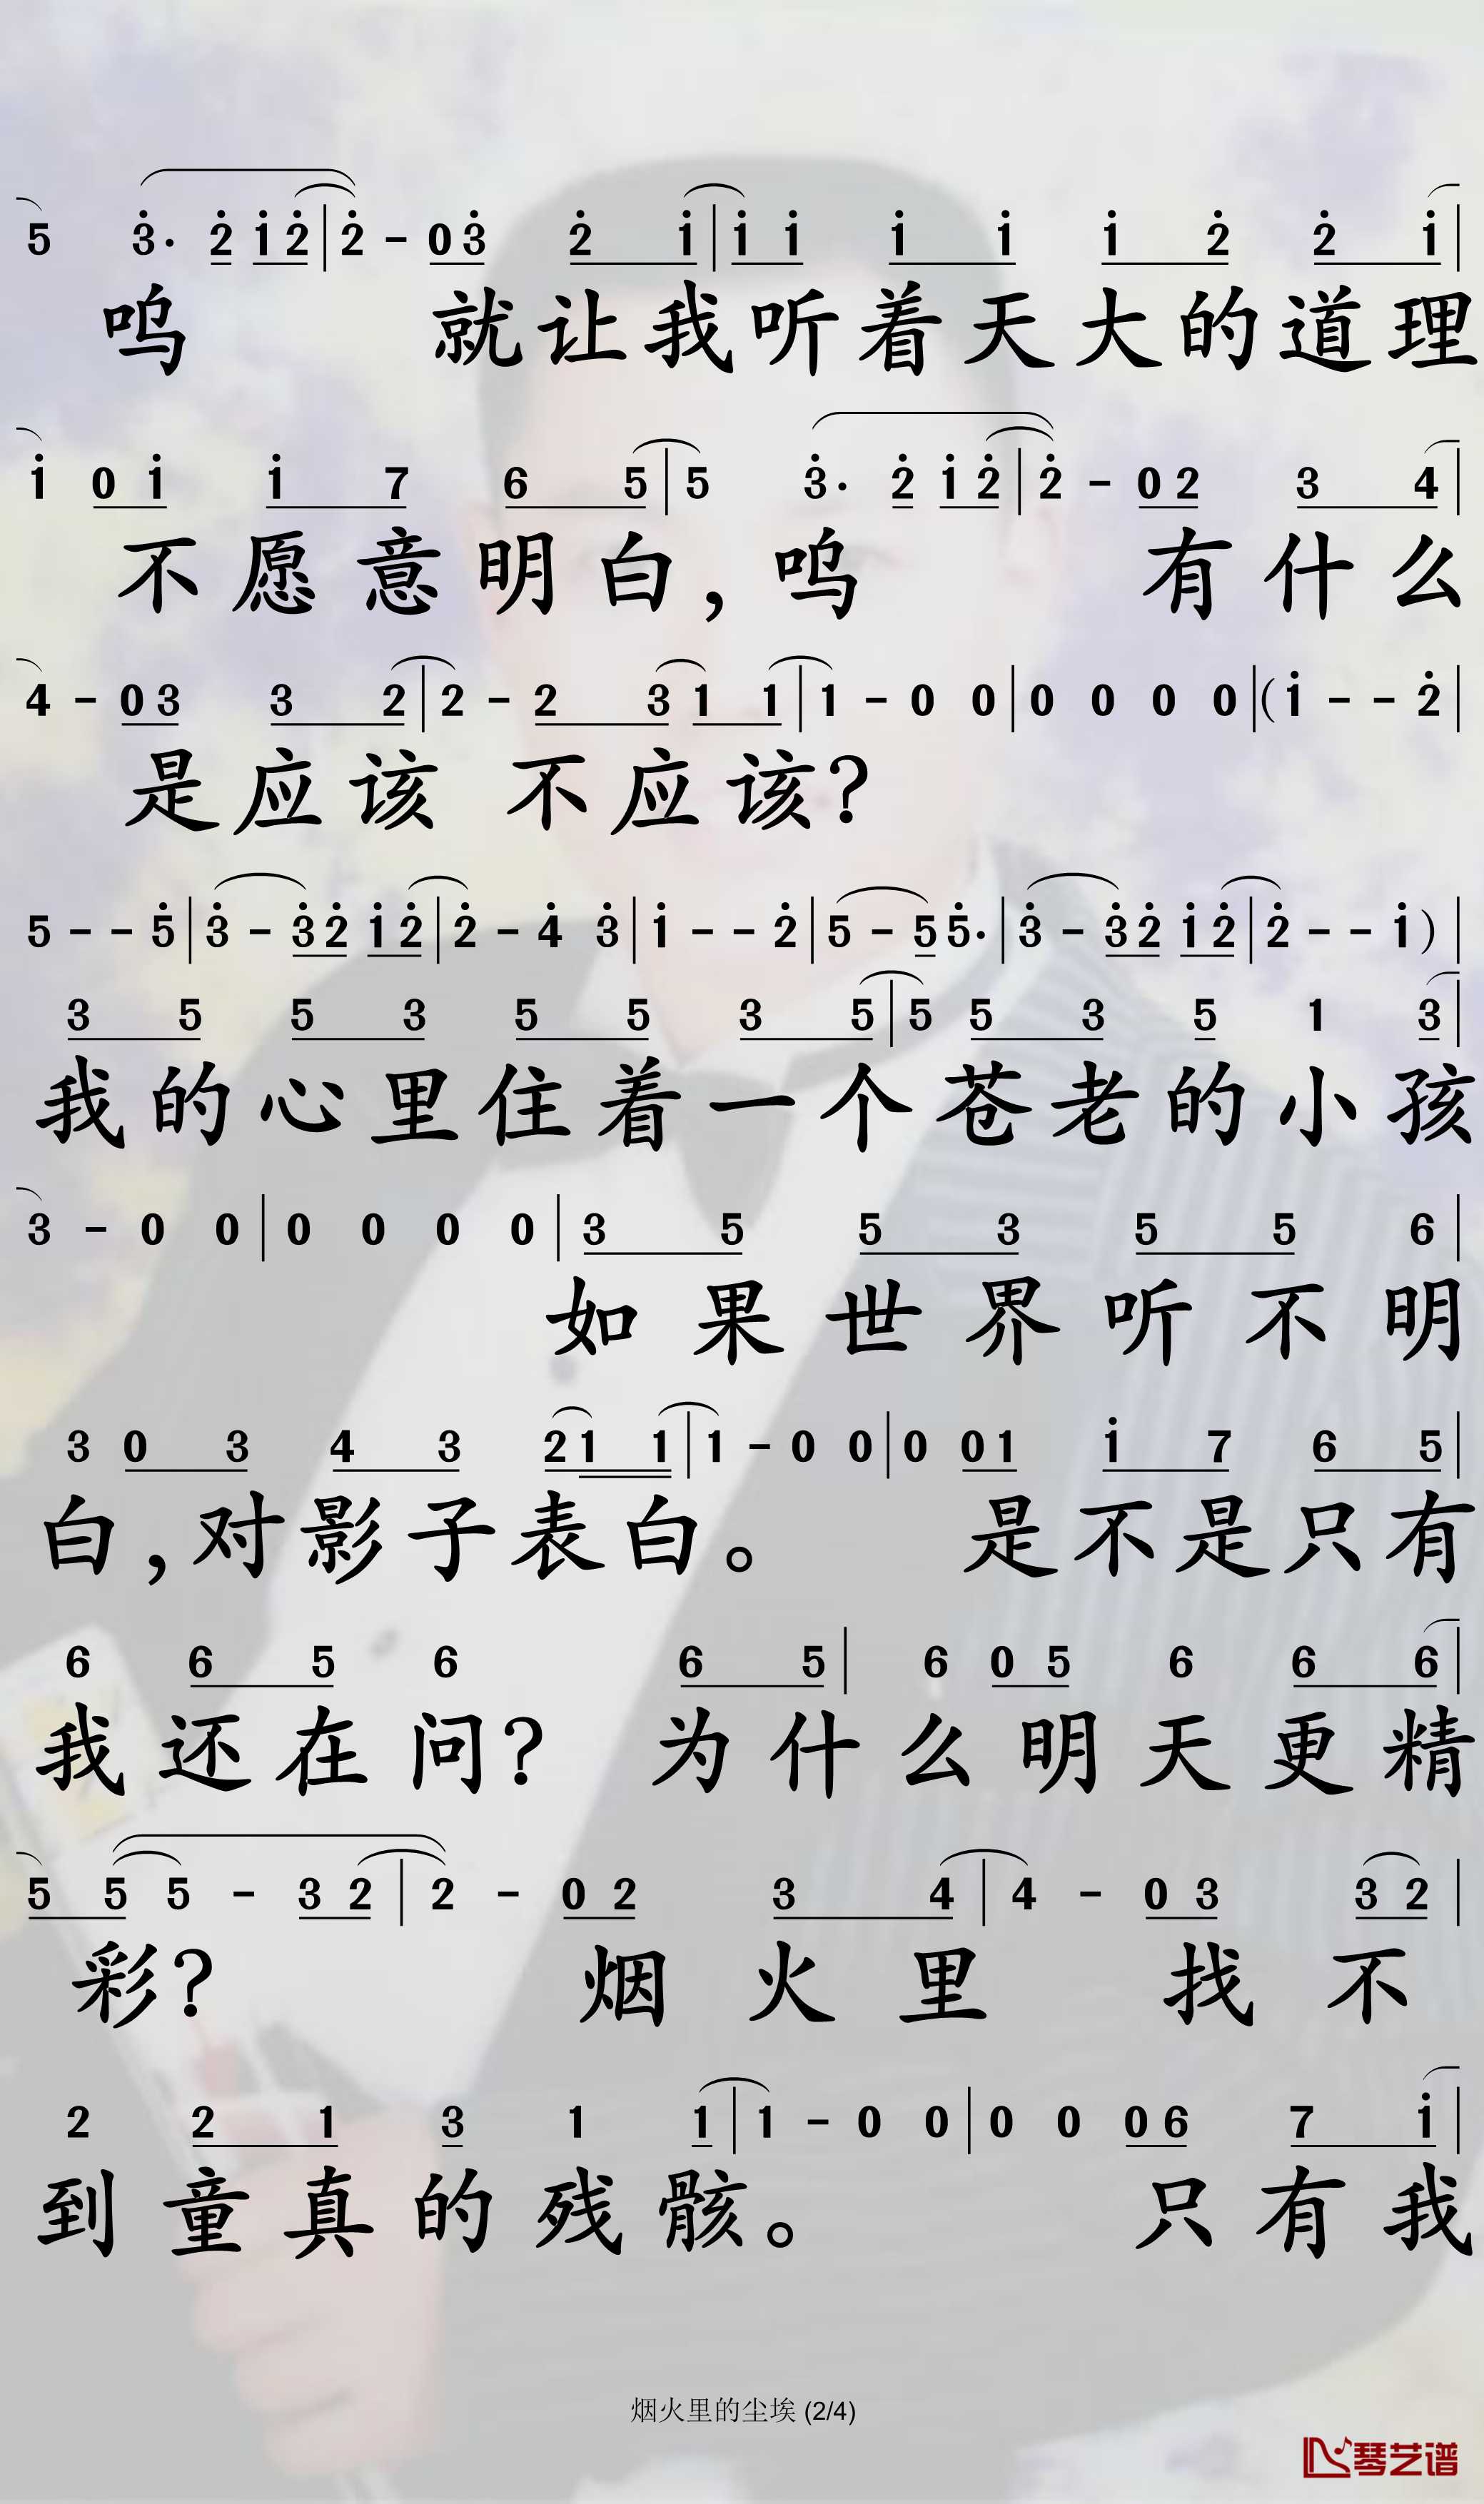 5 3̇· 2̇ 1̇ 2̇ | 2̇ - 0 3̇ 2̇ 1̇ | 1̇ 1̇ 1̇ 1̇ 1̇ 2̇ 2̇ 1̇ |
呜 就让我听着天大的道理
1̇ 0 1̇ 1̇ 7 6 5 | 5 3̇· 2̇ 1̇ 2̇ | 2̇ - 0 2 3 4 |
不愿意明白，呜 有什么
4 - 0 3 3 2 | 2 - 2 3 1 1 | 1 - 0 0 | 0 0 0 0 | (1̇ - - 2̇ |
是应该 不应该？
5 - - 5̇ | 3̇ - 3̇ 2̇ 1̇ 2̇ | 2̇ - 4̇ 3̇ | 1̇ - - 2̇ | 5 - 5 5̇· | 3̇ - 3̇ 2̇ 1̇ 2̇ | 2̇ - - 1̇ ) |
3 5 5 3 5 5 3 5 | 5 5 3 5 1 3 |
我的心里住着一个苍老的小孩
3 - 0 0 | 0 0 0 0 | 3 5 5 3 5 5 6 |
如果世界听不明
3 0 3 4 3 2 1 1 | 1 - 0 0 | 0 0 1 1̇ 7 6 5 |
白，对影子表白。 是不是只有
6 6 5 6 6 5 | 6 0 5 6 6 6 |
我还在问？ 为什么明天更精
5 5 5 - 3 2 | 2 - 0 2 3 4 | 4 - 0 3 3 2 |
彩？ 烟火里 找不
2 2 1 3 1 1 | 1 - 0 0 | 0 0 0 6 7 1̇ |
到童真的残骸。 只有我
烟火里的尘埃 (2/4)
琴艺谱